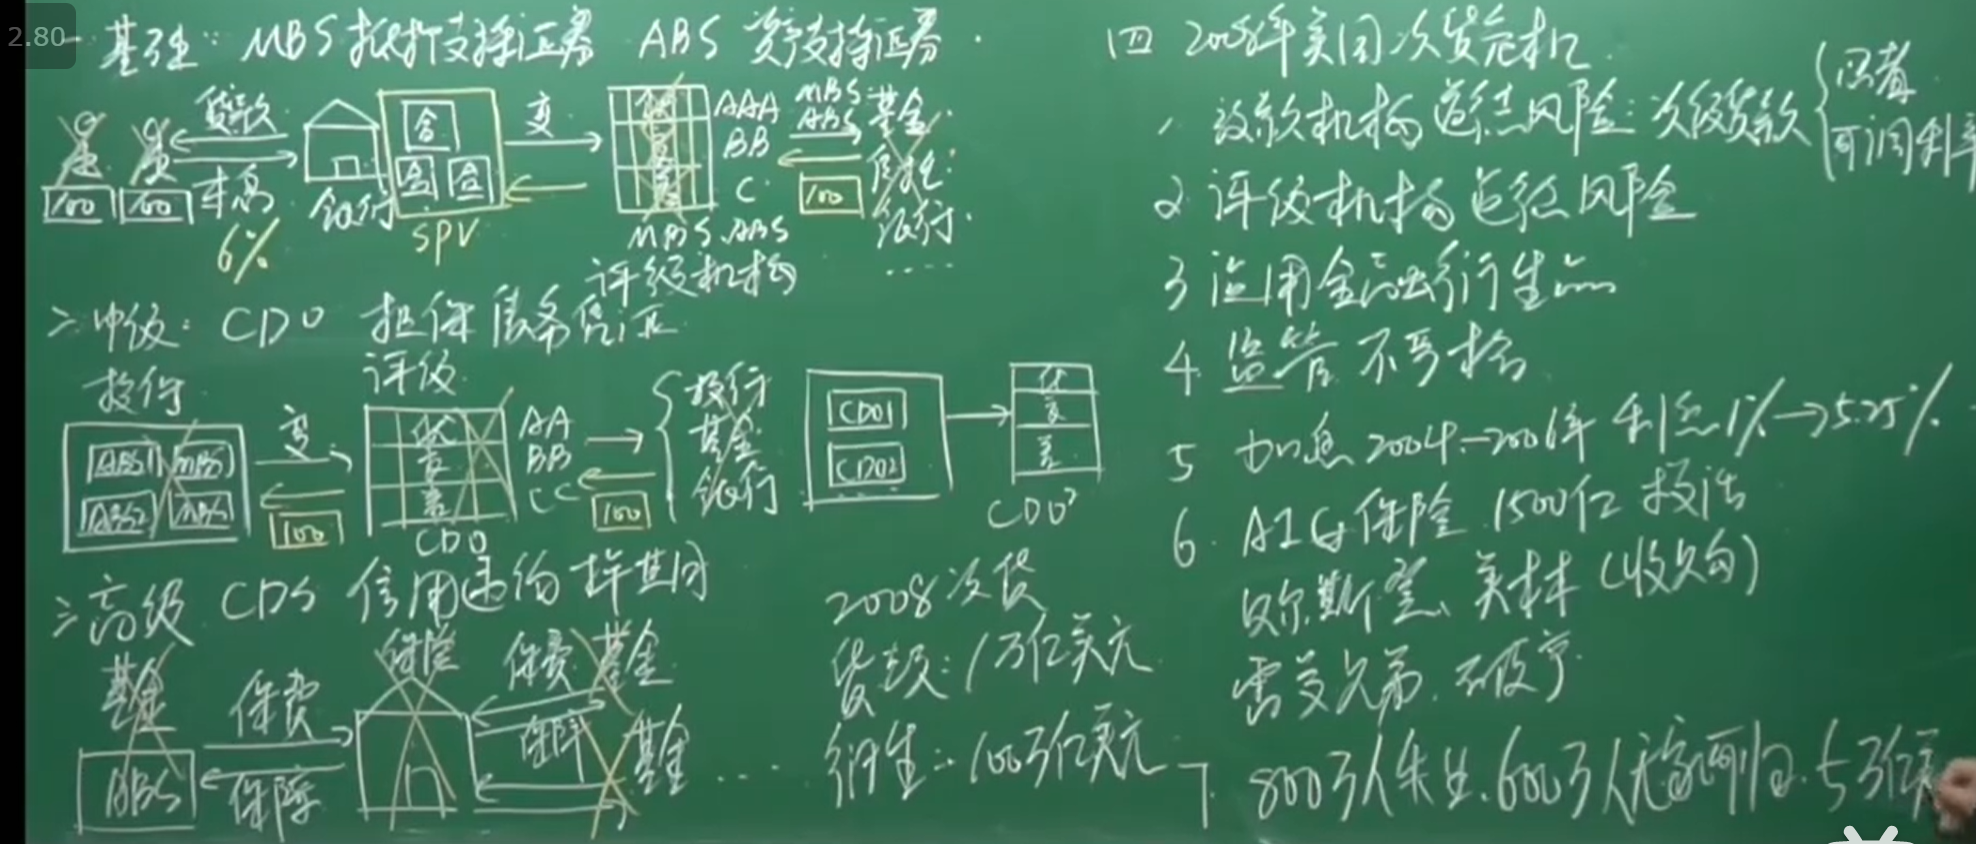 2.80
一 基础: MBS 抵押支持证券 ABS 资产支持证券.
贷款
本息
6%
100 100
银行
合
合 合
SPV
变
优
良
差
AAA
BB
C
MBS.ABS
评级机构
MBS
ABS
100
基金.
保险.
银行.
....
二 中级: CDO 担保债务凭证
投行
ABS1 MBS1
ABS2 MBS
变
100
评级
优
良
差
CDO
AA
BB
CC
100
投行
基金
银行
CDO1
CDO2
....
优
良
差
CDO²
三 高级 CDS 信用违约掉期
基金
ABS
保费
保障
保险
保费
保障
基金
基金
....
2008次贷
贷款: 1万亿美元
衍生: 100万亿美元
四 2008年美国次贷危机
1 放款机构道德风险: 次级贷款
可调利率
2 评级机构道德风险
3 运用金融衍生品
4 监管不严格
5 加息 2004.-2006年 利息1%→5.25%
6. AIG保险 1500亿 救活
贝尔斯登、美林 (收购)
雷曼兄弟. 破产.
7. 800万人失业.600万人无家可归.5万亿美